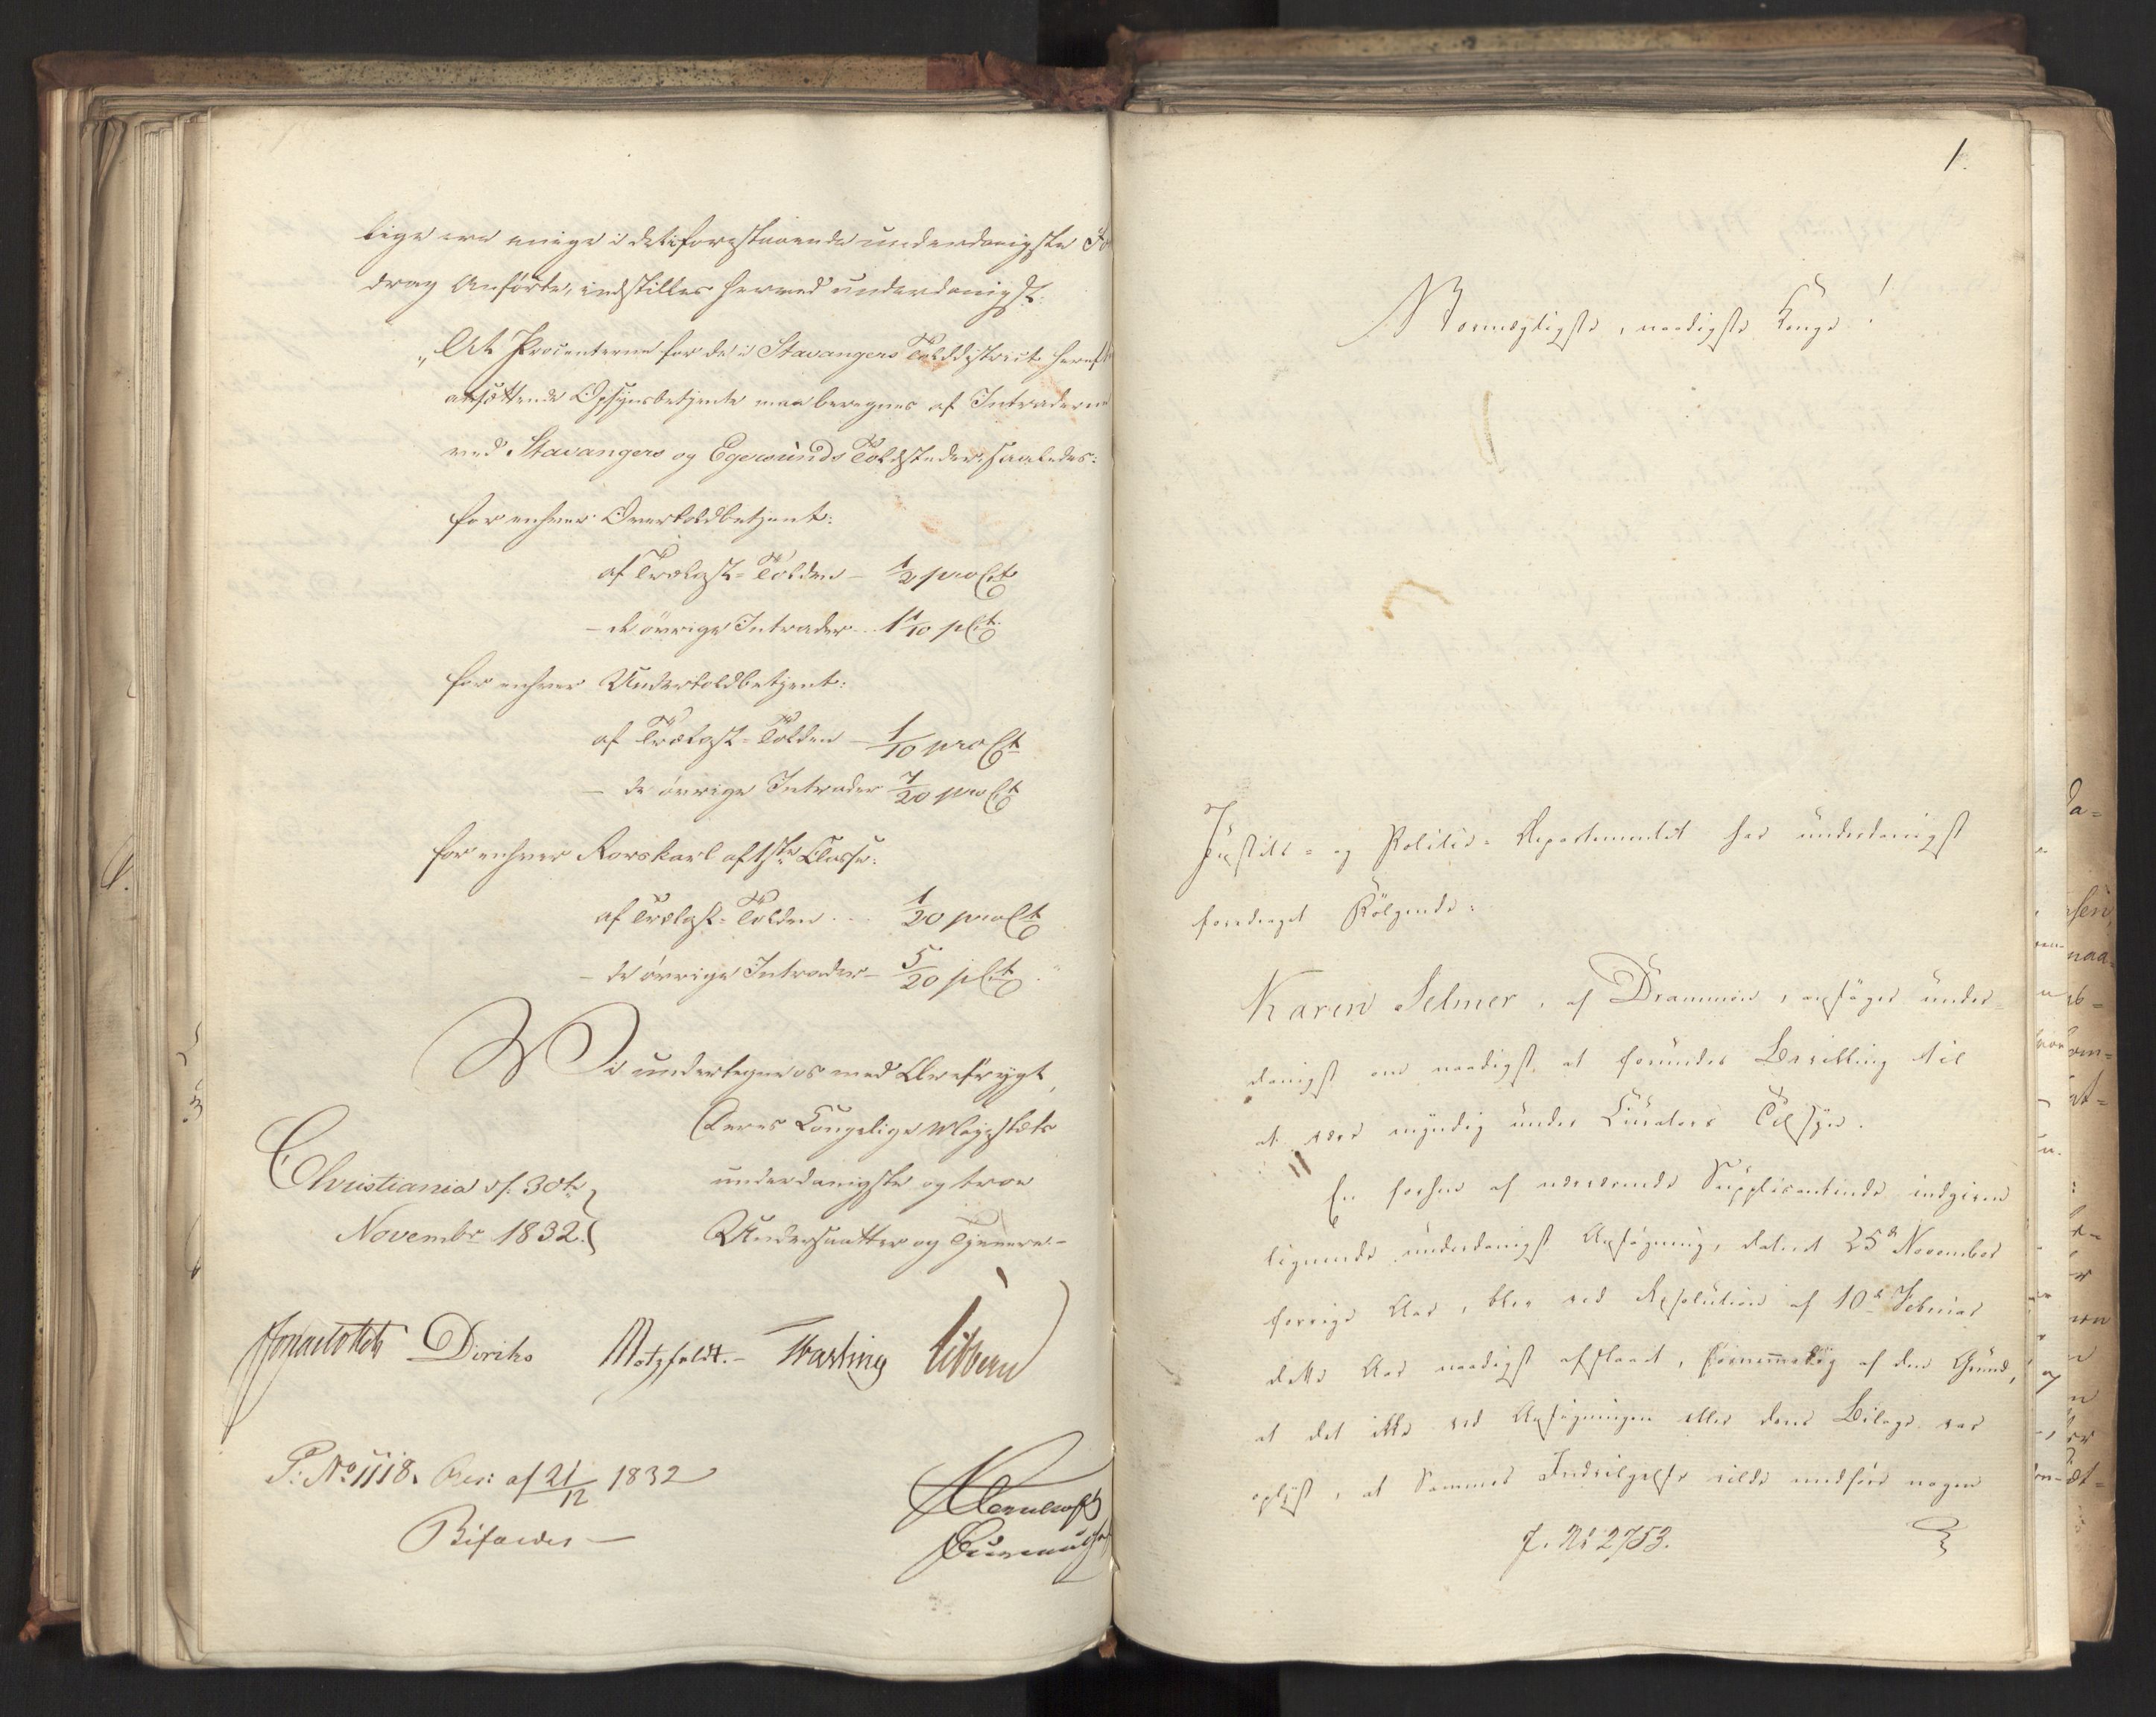 lige ere enige i det i forestaaende underdanigste Fo
drag Anførte, indstilles herved underdanigst:
„At Procenterne for de i Stavangers Tolddistrict heref
ansættende Opsynsbetjente maa beregnes af Intraderne
ved Stavangers og Egersunds Toldsteder, saaledes:
for enhver Overtoldbetjent:
af Trælast-Tolden – 1/2 pro Ct
– de øvrige Intrader... 1 1/10 p Ct.
for enhver Undertoldbetjent:
af Trælast-Tolden – 1/10 pro Ct
– de øvrige Intrader 7/20 pro Ct
for enhver Rorskarl af 1ste Classe:
af Trælast-Tolden ... 1/20 pro Ct
– de øvrige Intrader – 5/20 p Ct."
Vi undertegne os med Ærefrygt,
Deres Kongelige Majestæts
Christiania d. 30te
underdanigste og troe
Novembr 1832.
Undersaatter og Tjenere.–
Diriks Motzfeldt.–
P: No 1118. Res: af 21/12 1832
Bifaldes –
1.
Stormægtigste, naadigste Konge!
Justits- og Politie-Departementet har underdanigst
foredraget Følgende:
Karen Selmer, af Drammen, ansøger under-
danigst om naadigst at forundes Bevilling til
at være myndig under Curators Tilsyn.
En forhen af nærværende Supplicantinde indgiven
lignende underdanigst Ansøgning, dateret 25de November
forrige Aar, blev ved Resolution af 10de Februar
dette Aar naadigst afslaaet, fornemmelig af den Grund,
at det ikke ved Ansøgningen eller dens Bilage var
oplyst, at Sammes Indvilgelse vilde medføre nogen
J. No 2753.